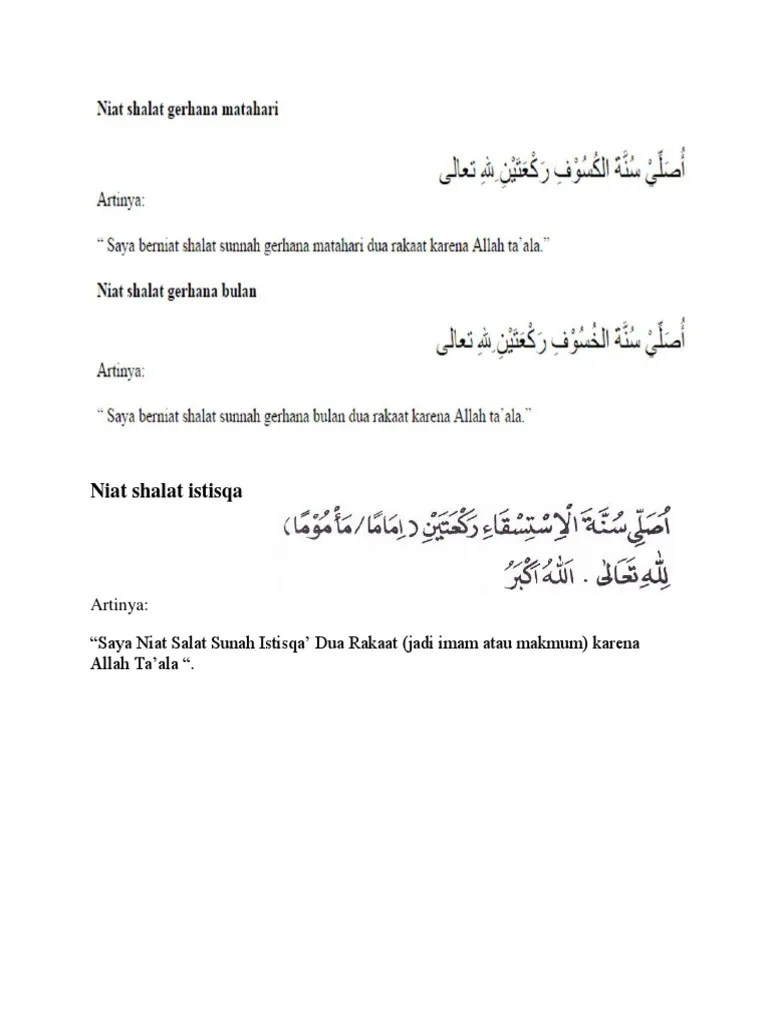 Niat shalat gerhana matahari
أُصَلِّيْ سُنَّةَ الكُسُوْفِ رَكْعَتَيْنِ لِلهِ تعالى
Artinya:
“ Saya berniat shalat sunnah gerhana matahari dua rakaat karena Allah ta’ala.”
Niat shalat gerhana bulan
أُصَلِّيْ سُنَّةَ الخُسُوْفِ رَكْعَتَيْنِ لِلهِ تعالى
Artinya:
“ Saya berniat shalat sunnah gerhana bulan dua rakaat karena Allah ta’ala.”
Niat shalat istisqa
اُصَلِّى سُنَّةَ الْاِسْتِسْقَاءِ رَكْعَتَيْنِ (اِمَامًا/مَأْمُوْمًا)
لِلّٰهِ تَعَالٰى . اَللهُ اَكْبَرُ
Artinya:
“Saya Niat Salat Sunah Istisqa’ Dua Rakaat (jadi imam atau makmum) karena
Allah Ta’ala “.